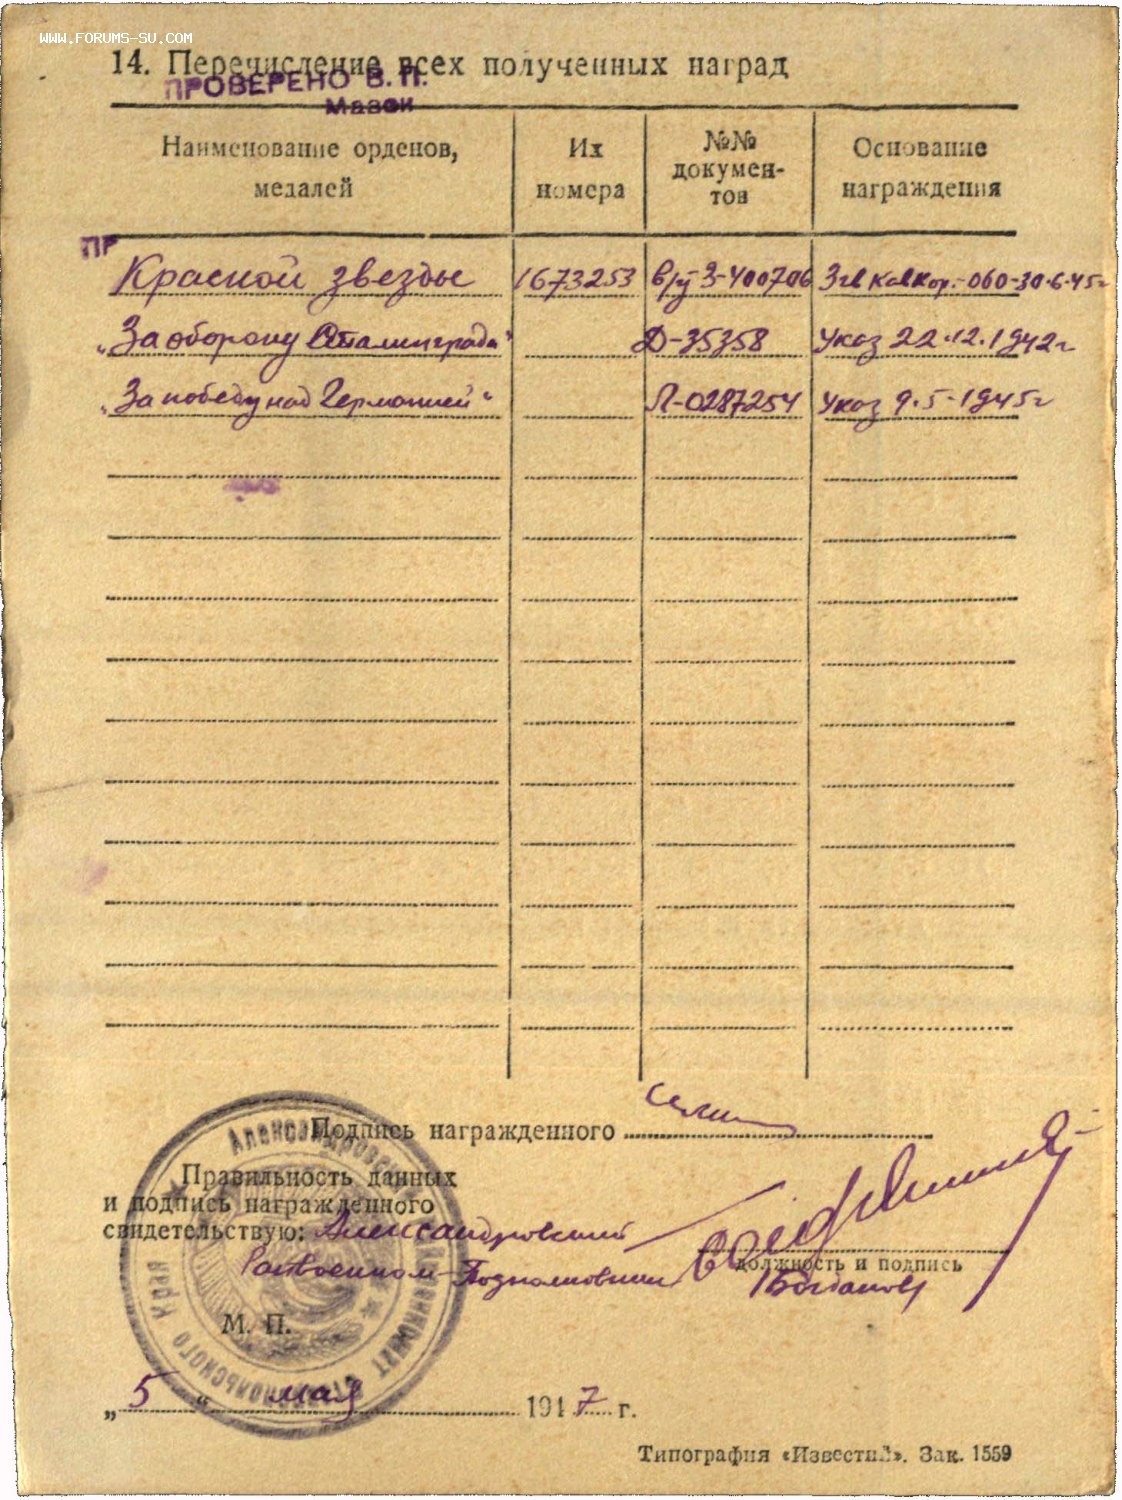 WWW.FORUMS-SU.COM
14. Перечисление всех полученных наград
ПРОВЕРЕНО В. П.
Наименование орденов, медалей
Их номера
№№ докумен-
тов
Основание награждения
ПР
Красной звезды 1673253 в/у З-400706 3 гв кав кор.-060-30.6.45г
„За оборону Сталинграда" Д-35358 Указ 22.12.1942г
„За победу над Германией" Л-0287254 Указ 9.5.1945г
Подпись награжденного
Правильность данных
и подпись награжденного
свидетельствую: Александровский
Подполковник
должность и подпись
/Богданов/
М. П.
Ставропольского Края
„5" мая 1947 г.
Типография «Известий». Зак. 1559